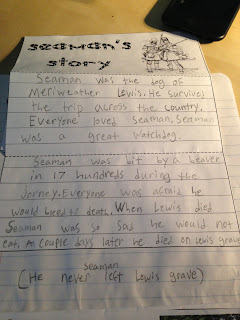 Seaman's
Story
Seaman was the dog of
Meriweather Lewis. He survived
the trip across the country.
Everyone loved Seaman. Seaman
was a great watchdog.
Seaman was bit by a beaver
in 17 hundreds during the
Jorney. Everyone was afraid he
would bleed to death. When Lewis died
Seaman was so sad he would not
eat. A couple days later he died on lewis grave
seaman
(He never left Lewis grave)